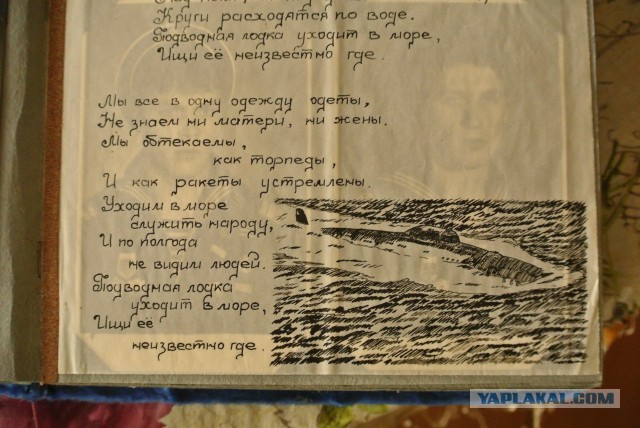 Круги расходятся по воде.
Подводная лодка уходит в море,
Ищи её неизвестно где.
Мы все в одну одежду одеты,
Не знаем ни матери, ни жены.
Мы обтекаемы,
как торпеды,
И как ракеты устремлены.
Уходим в море
служить народу,
И по полгода
не видим людей.
Подводная лодка
уходит в море,
Ищи её
неизвестно где.
YAPLAKAL.COM